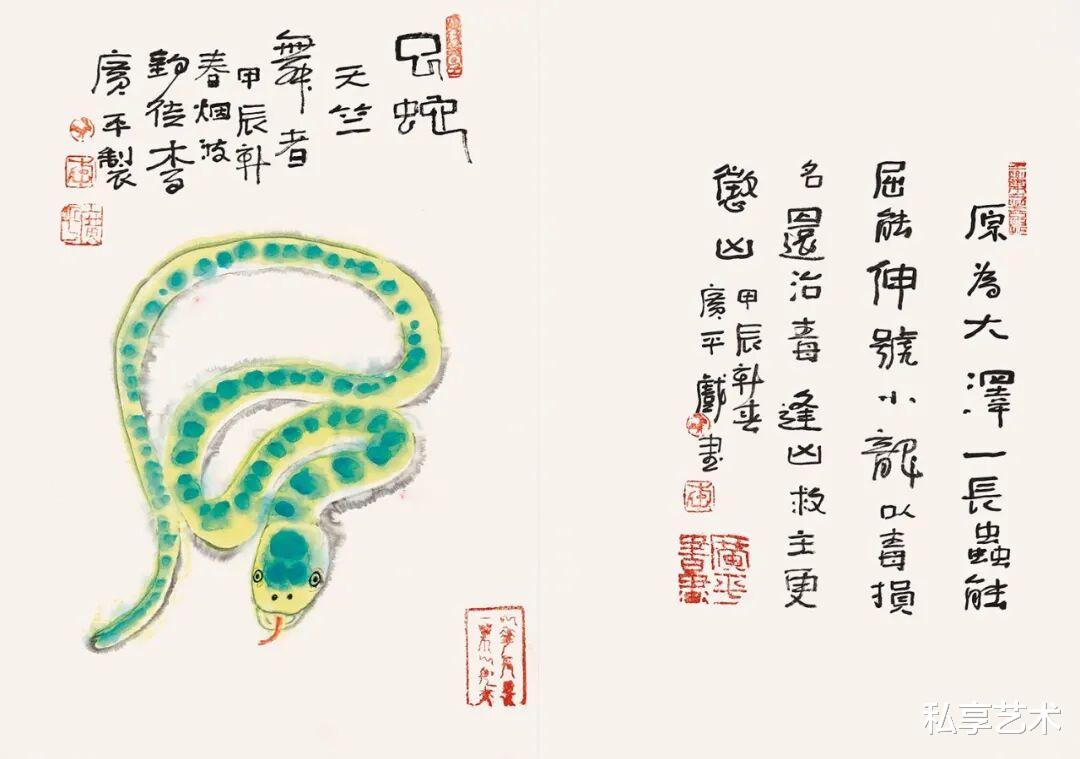 原為大澤一長蟲能
屈能伸號小龍以毒損
名還治毒逢凶救主更
懲凶
甲辰新春
廣平戲畫
廣平書畫
巳蛇
天竺
舞者
甲辰新
春烟波
釣徒李
廣平製
廣平
私享艺术